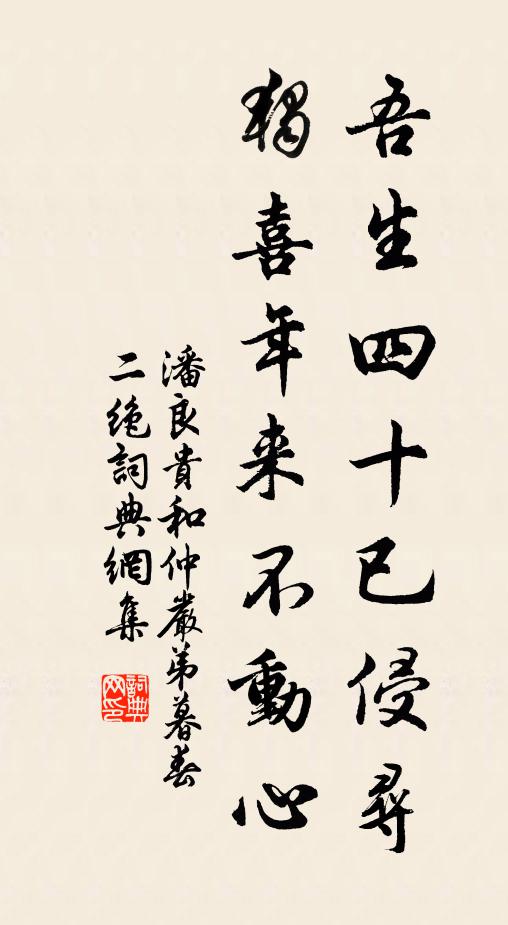 吾生四十已侵尋
獨喜年来不動心
潘良貴和仲嚴弟暮春
二絶詞典網集
詞典网印